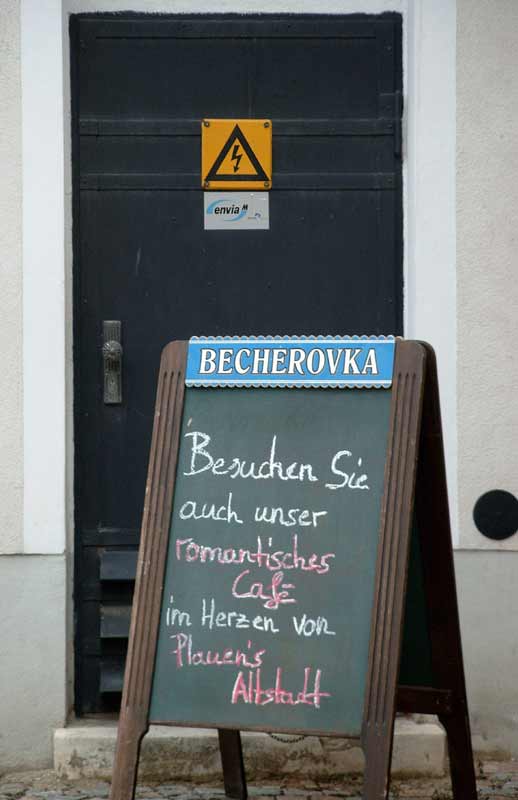 envia M
BECHEROVKA
Besuchen Sie
auch unser
romantisches
Café
im Herzen von
Plauen's
Altstadt